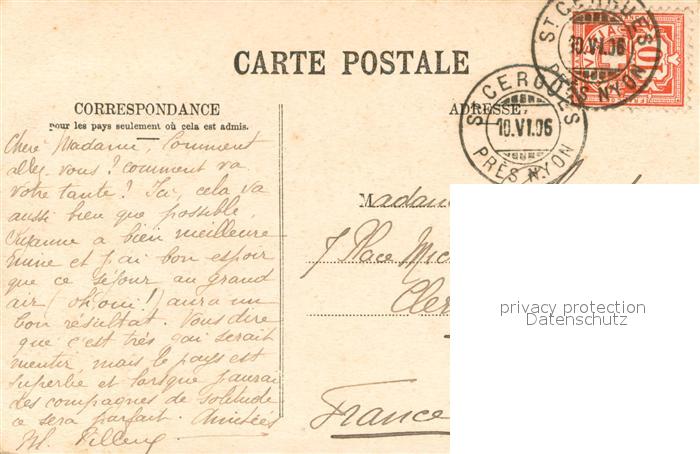 CARTE POSTALE
CORRESPONDANCE
pour les pays seulement où cela est admis.
ADRESSE
ST CERGUES
10.VI.06
PRÈS NYON
ST CERGUES
10.VI.06
PRÈS NYON
10
Chère Madame, Comment
allez vous? comment va
votre tante? Ici, cela va
aussi bien que possible,
a bien meilleure
mine et j'ai bon espoir
que ce séjour au grand
air (oh oui!) aura un
bon résultat. Vous dire
que c'est très gai serait
mentir, mais le pays est
superbe et lorsque j'aurai
des compagnes de solitude
ce sera parfait. Amitiés
M.
Madame
7 Place Mic
Cler
France
privacy protection
Datenschutz